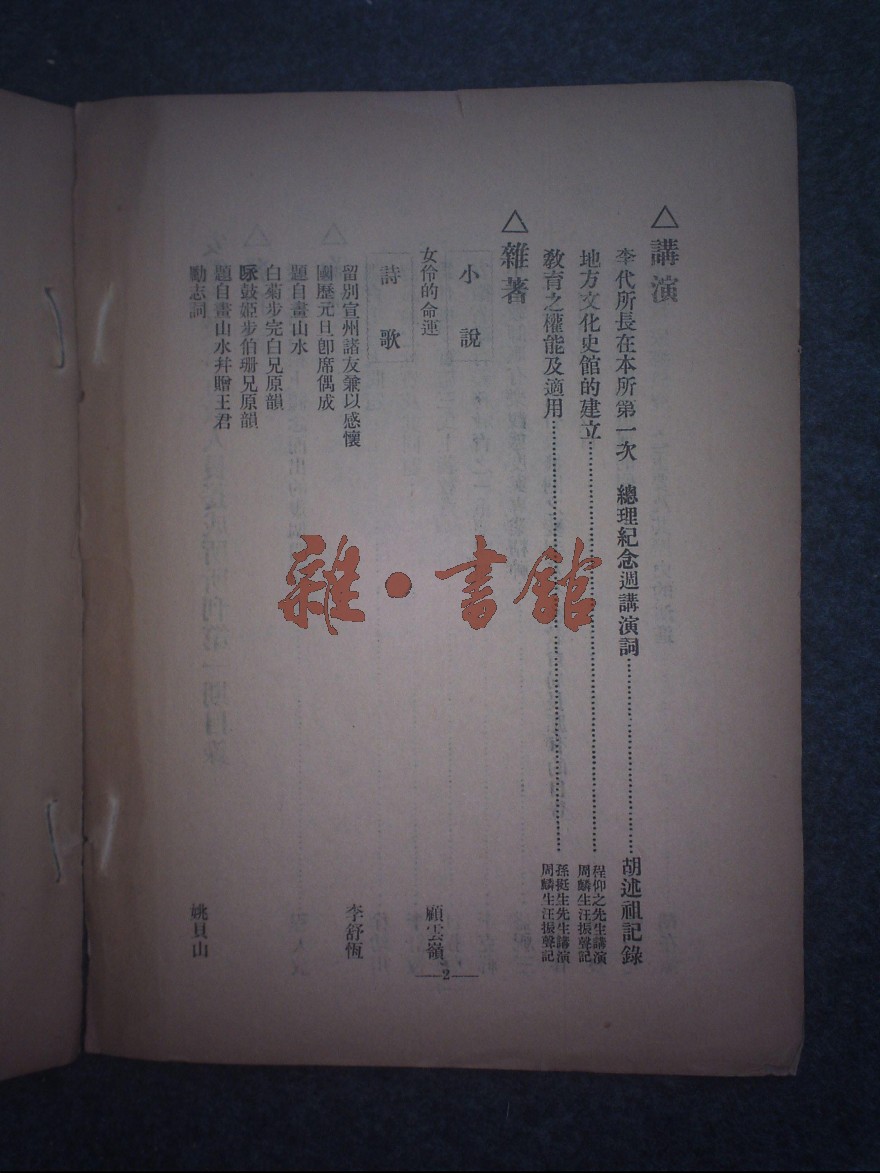 △講演
李代所長在本所第一次　總理紀念週講演詞……胡述祖記錄
地方文化史館的建立……程仰之先生講演
周麟生汪振聲記
教育之權能及適用……孫挺生先生講演
周麟生汪振聲記
△雜著
小說
女伶的命運　顧雲嶺
詩歌
留別宣州諸友兼以感懷　李舒恆
國歷元旦卽席偶成
題自畫山水
白菊步完白兄原韻
詠鼓姬步伯珊兄原韻
題自畫山水并贈王君
勵志詞　姚貝山
—2—
雜·書館